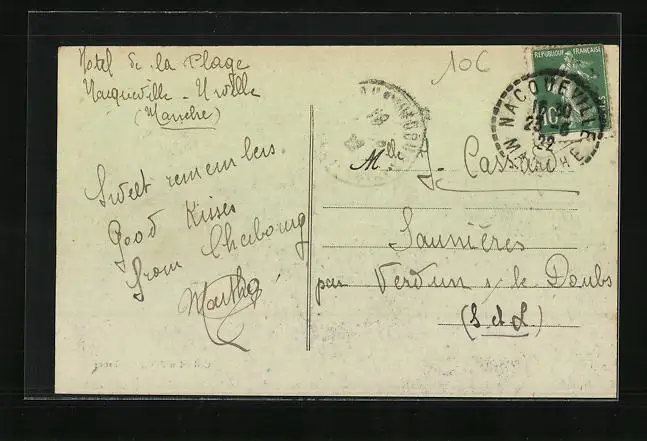 Hotel de la Plage
Nacqueville - Urville
(Manche)
Sweet remembers
Good Kisses
from Cherbourg
Martha
10C
REPUBLIQUE FRANÇAISE
10
NACQUEVILLE
MANCHE
22
Mlle J. Cassard
Saunières
par Verdun s/ le Doubs
(S. et L.)